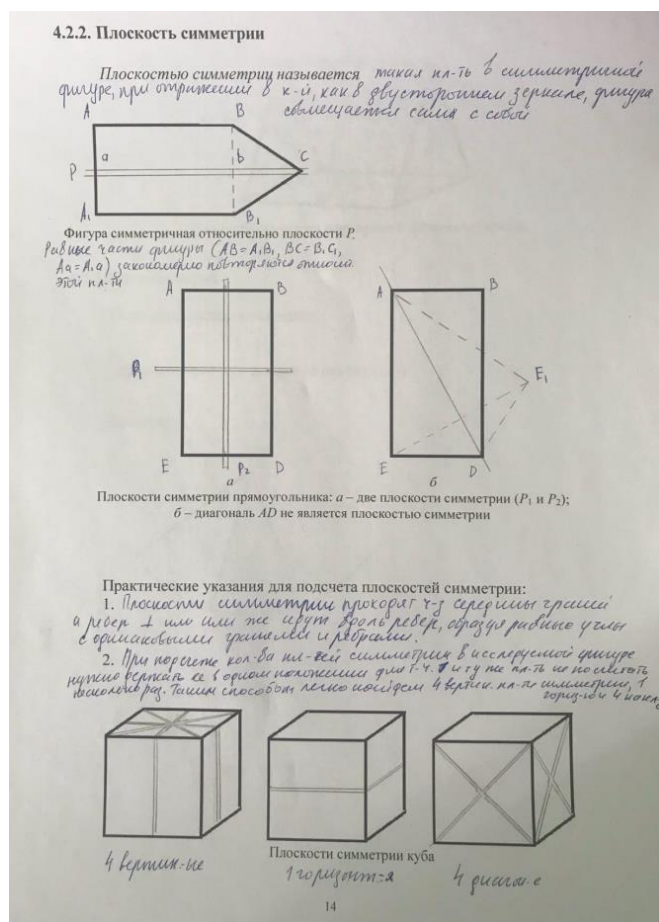 4.2.2. Плоскость симметрии
Плоскостью симметрии называется такая пл-ть в симметричной
фигуре, при отражении в к-й, как в двустороннем зеркале, фигура
совмещается сама с собой
A B
a b C
P
A₁ B₁
Фигура симметричная относительно плоскости P.
Равные части фигуры (AB = A₁B₁, BC = B₁C₁,
Aa = A₁a) закономерно повторяются относит.
этой пл-ти
A B A B
P₁ E₁
E P₂ D E D
а б
Плоскости симметрии прямоугольника: а – две плоскости симметрии (P₁ и P₂);
б – диагональ AD не является плоскостью симметрии
Практические указания для подсчета плоскостей симметрии:
1. Плоскости симметрии проходят ч-з середины граней
и ребер ⊥ или или же идут вдоль ребер, образуя равные углы
с одинаковыми гранями и ребрами.
2. При подсчете кол-ва пл-тей симметрии в исследуемой фигуре
нужно держать ее в одном положении для т. ч. 1 и ту же пл-ть не посчитать
несколько раз. Таким способом легко найдем 4 вертик. пл-ти симметрии, 1
гориз-ю и 4 накл.
Плоскости симметрии куба
4 вертик-ые 1 горизонт-я 4 диагон-е
14